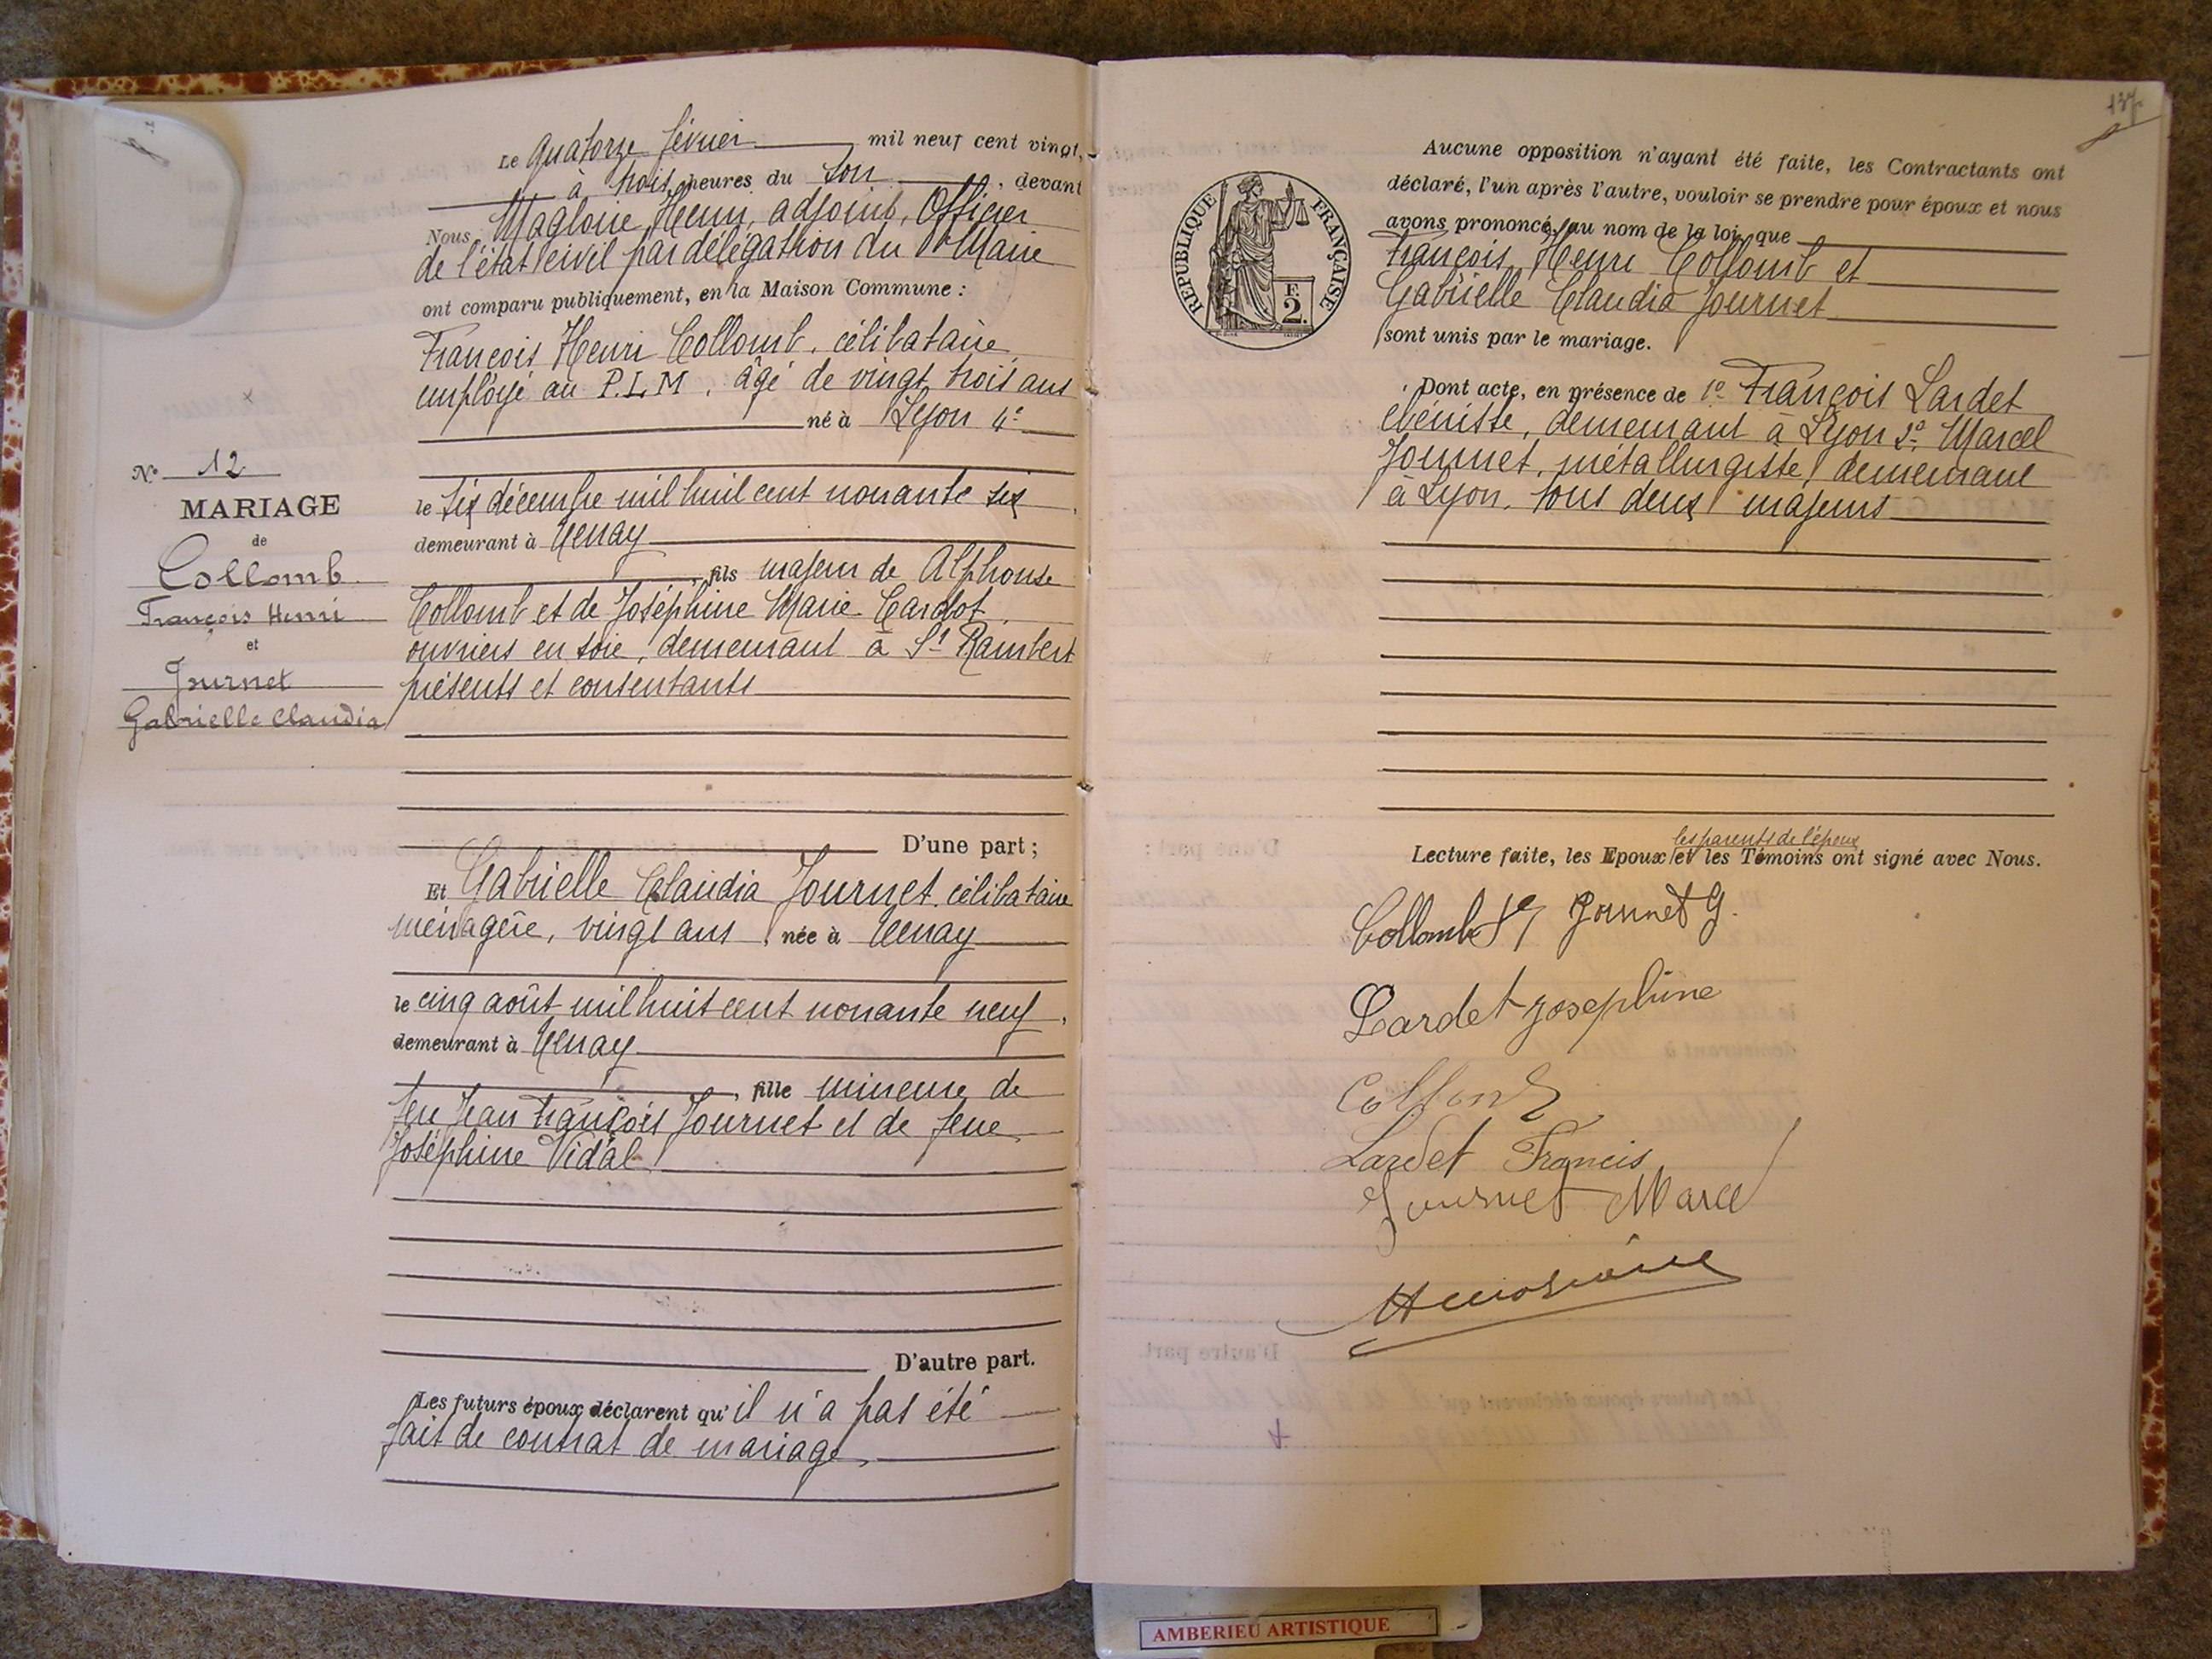 Le quatorze février mil neuf cent vingt,
à trois heures du soir, devant
Nous Magloire Henri, adjoint, Officier
de l'état civil par délégation du Mr Maire
ont comparu publiquement, en la Maison Commune :
François Henri Collomb, célibataire,
employé au P.L.M, âgé de vingt trois ans
né à Lyon 4e
le six décembre mil huit cent nonante six,
demeurant à Tenay
, fils majeur de Alphonse
Collomb et de Joséphine Marie Cardot
ouvriers en soie, demeurant à St Rambert
présents et consentants
N° 12
MARIAGE
de
Collomb
François Henri
et
Journet
Gabrielle Claudia
D'une part ;
Et Gabrielle Claudia Journet, célibataire
ménagère, vingt ans, née à Tenay
le cinq août mil huit cent nonante neuf,
demeurant à Tenay
, fille mineure de
feu Jean François Journet et de feue
Joséphine Vidal
D'autre part.
Les futurs époux déclarent qu'il n'a pas été
fait de contrat de mariage,
137
RÉPUBLIQUE FRANÇAISE
F.
2.
Aucune opposition n'ayant été faite, les Contractants ont
déclaré, l'un après l'autre, vouloir se prendre pour époux et nous
avons prononcé, au nom de la loi, que
François Henri Collomb et
Gabrielle Claudia Journet
sont unis par le mariage.
Dont acte, en présence de 1o François Lardet
ébéniste, demeurant à Lyon 2o Marcel
Journet, métallurgiste, demeurant
à Lyon, tous deux majeurs
les parents de l'époux
Lecture faite, les Epoux et les Témoins ont signé avec Nous.
Collomb Journet G.
Lardet Josephine
Collomb
Lardet Francis
Journet Marcel
AMBERIEU ARTISTIQUE